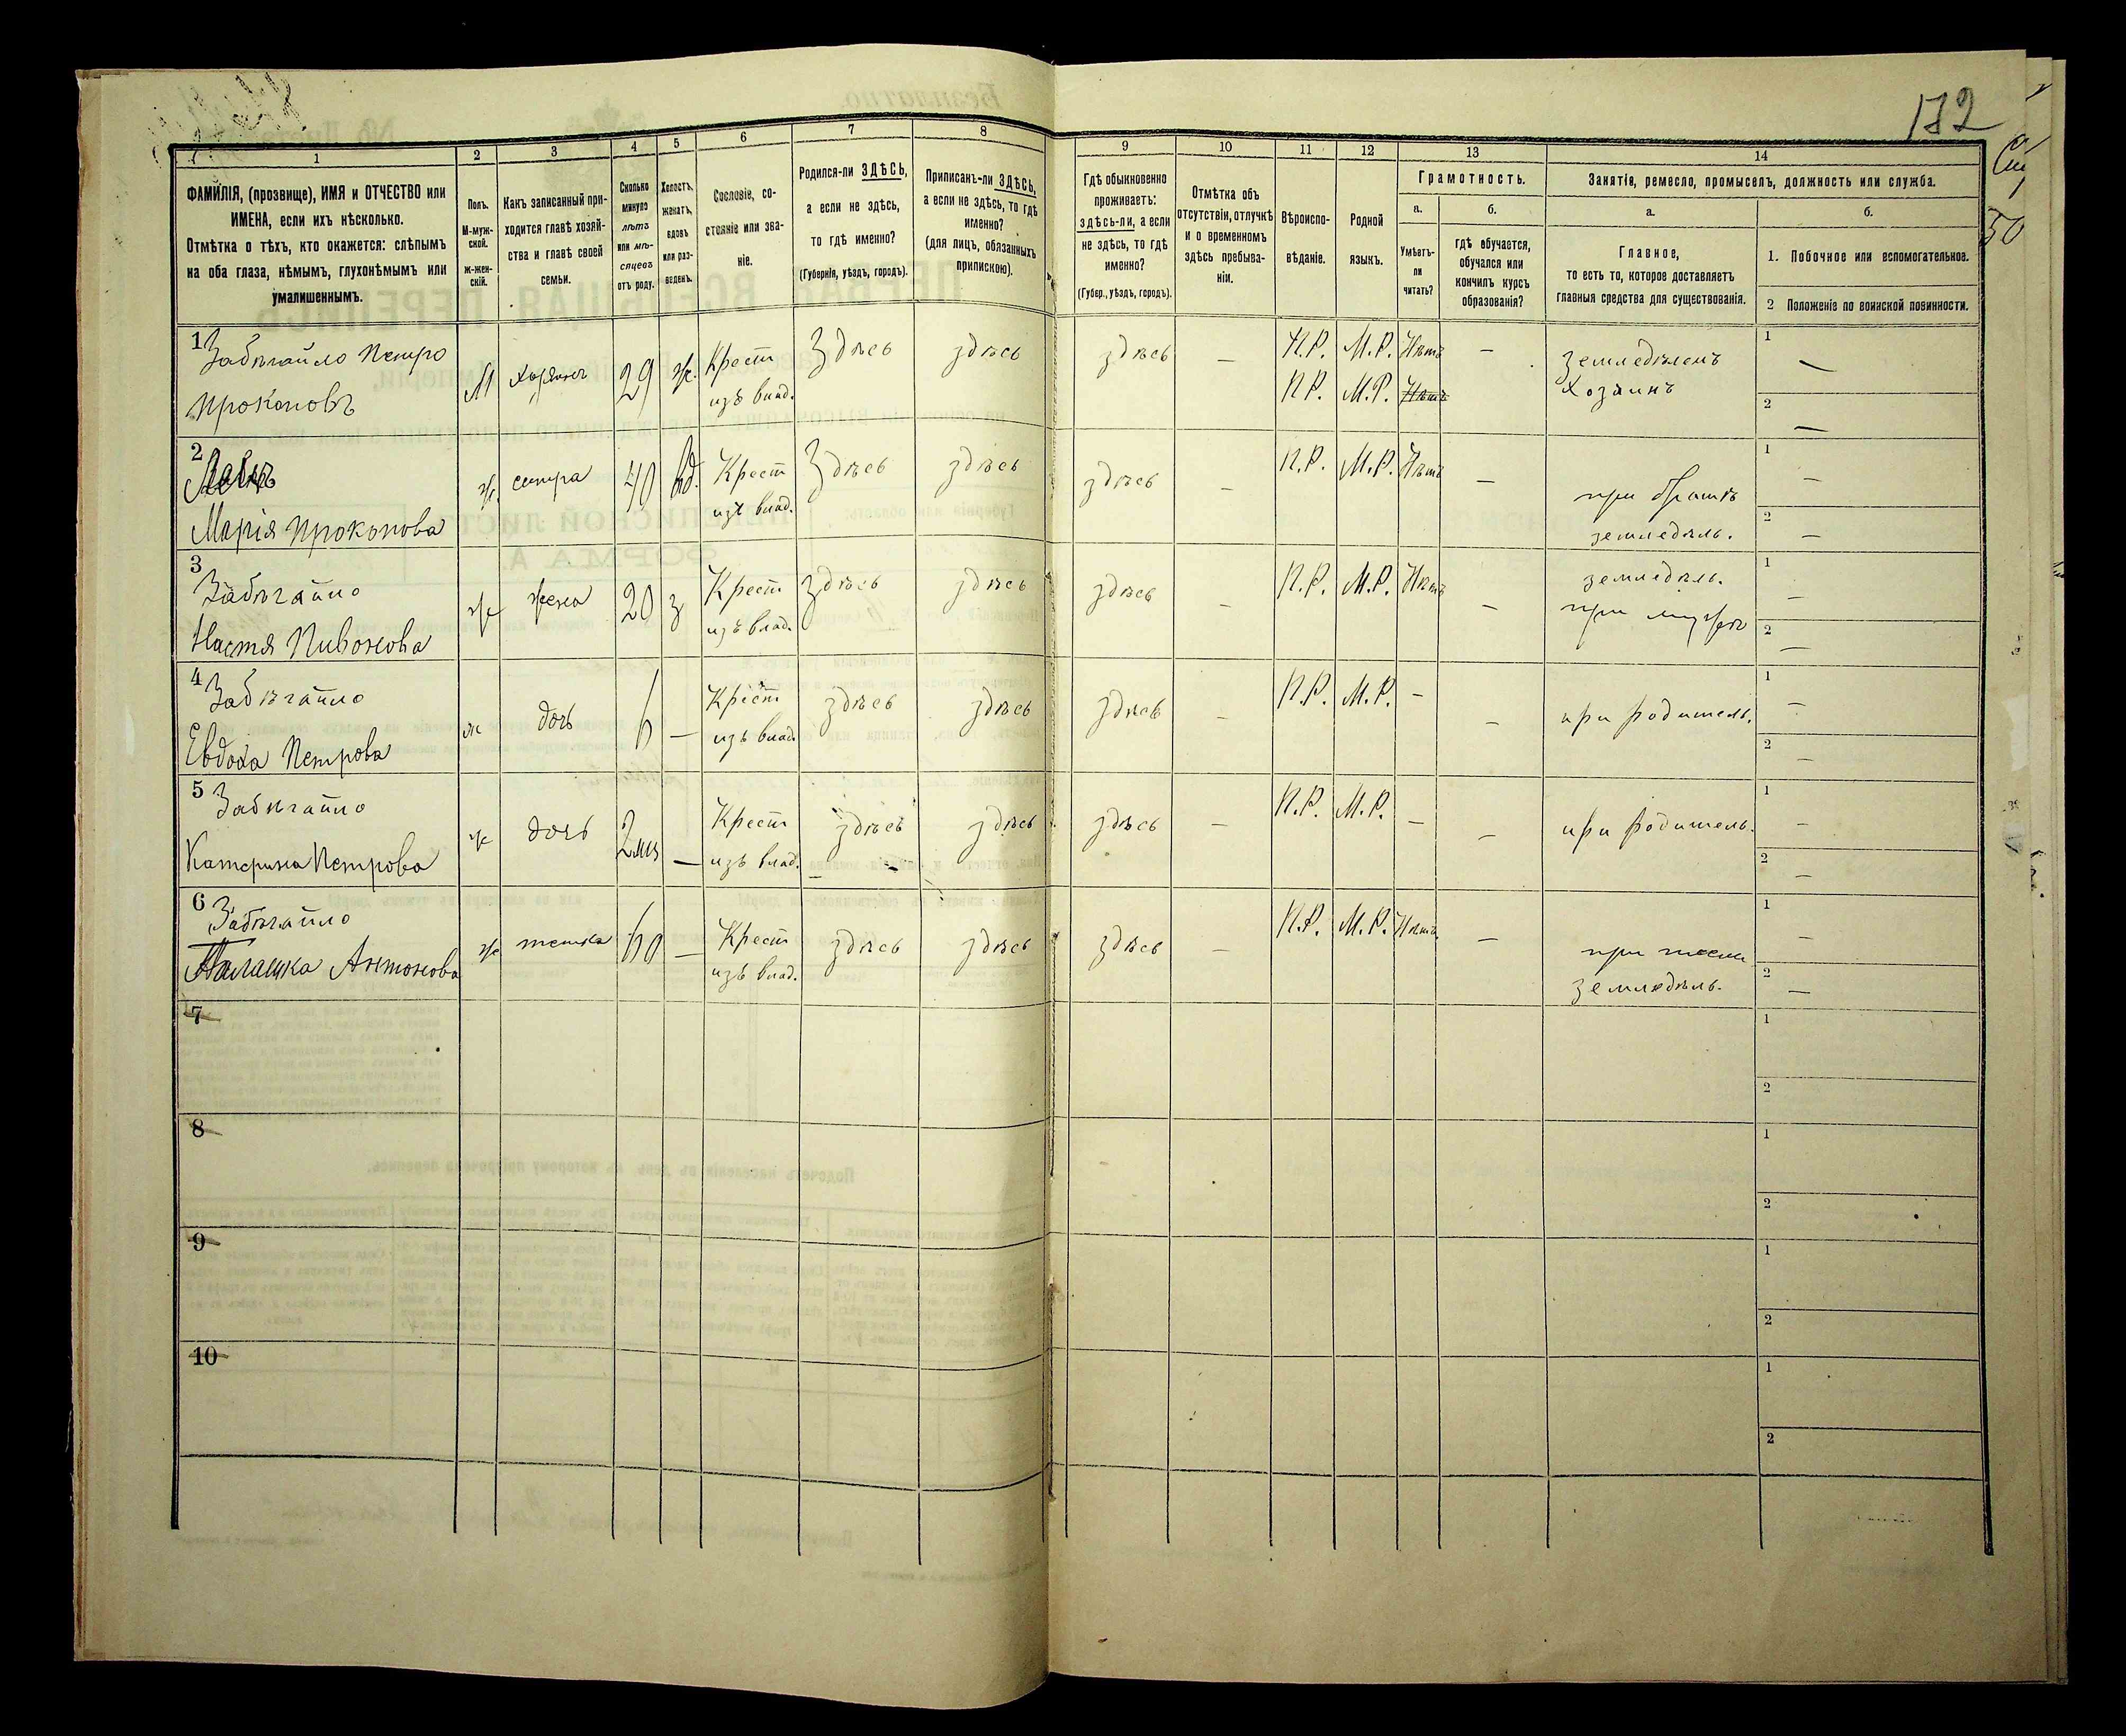 172
1
2
3
4
5
6
7
8
9
10
11
12
13
14
ФАМИЛІЯ, (прозвище), ИМЯ и ОТЧЕСТВО или
ИМЕНА, если ихъ нѣсколько.
Отмѣтка о тѣхъ, кто окажется: слѣпымъ
на оба глаза, нѣмымъ, глухонѣмымъ или
умалишеннымъ.
Полъ.
М-муж-
ской.
ж-жен-
скій.
Какъ записанный при-
ходится главѣ хозяй-
ства и главѣ своей
семьи.
Сколько
минуло
лѣтъ
или мѣ-
сяцевъ
отъ роду.
Холостъ,
женатъ,
вдовъ
или раз-
веденъ.
Сословіе, со-
стояніе или зва-
ніе.
Родился-ли ЗДѢСЬ,
а если не здѣсь,
то гдѣ именно?
(Губернія, уѣздъ, городъ).
Приписанъ-ли ЗДѢСЬ,
а если не здѣсь, то гдѣ
именно?
(для лицъ, обязанныхъ
припискою).
Гдѣ обыкновенно
проживаетъ:
здѣсь-ли, а если
не здѣсь, то гдѣ
именно?
(Губер., уѣздъ, городъ).
Отмѣтка объ
отсутствіи, отлучкѣ
и о временномъ
здѣсь пребыва-
ніи.
Вѣроиспо-
вѣданіе.
Родной
языкъ.
Грамотность.
а.
Умѣетъ-
ли
читать?
б.
гдѣ обучается,
обучался или
кончилъ курсъ
образованія?
Занятія, ремесло, промыселъ, должность или служба.
а.
Главное,
то есть то, которое доставляетъ
главныя средства для существованія.
б.
1. Побочное или вспомогательное.
2 Положеніе по воинской повинности.
1 Забѣгайло Петро
Прокоповъ
М
хозяинъ
29
ж.
Крест
изъ влад.
Здѣсь
здѣсь
здѣсь
—
П.Р. М.Р. Нѣтъ
П.Р. М.Р. Нѣтъ
—
земледѣлецъ
Хозяинъ
1 —
2 —
2
Марія Прокопова
ж
сестра
40
вд.
Крест
изъ влад.
Здѣсь
здѣсь
здѣсь
—
П.Р. М.Р. Нѣтъ
—
при братѣ
земледѣль.
1 —
2 —
3 Забѣгайло
Настя Пивонова
ж
жена
20
з
Крест
изъ влад.
здѣсь
здѣсь
здѣсь
—
П.Р. М.Р. Нѣтъ
—
земледѣль.
при мужѣ
1 —
2 —
4 Забѣгайло
Евдоха Петрова
ж
дочь
—
Крест
изъ влад.
здѣсь
здѣсь
здѣсь
—
П.Р. М.Р. —
—
при родитель.
1 —
2 —
5 Забѣгайло
Катерина Петрова
ж
дочь
2 мѣ
—
Крест
изъ влад.
здѣсь
здѣсь
здѣсь
—
П.Р. М.Р. —
—
при родитель.
1 —
2 —
6 Забѣгайло
Палашка Антонова
ж
тетка
60
—
Крест
изъ влад.
здѣсь
здѣсь
здѣсь
—
П.Р. М.Р. Нѣтъ
—
при
земледѣль.
1 —
2 —
7
1
2
8
1
2
9
1
2
10
1
2
50